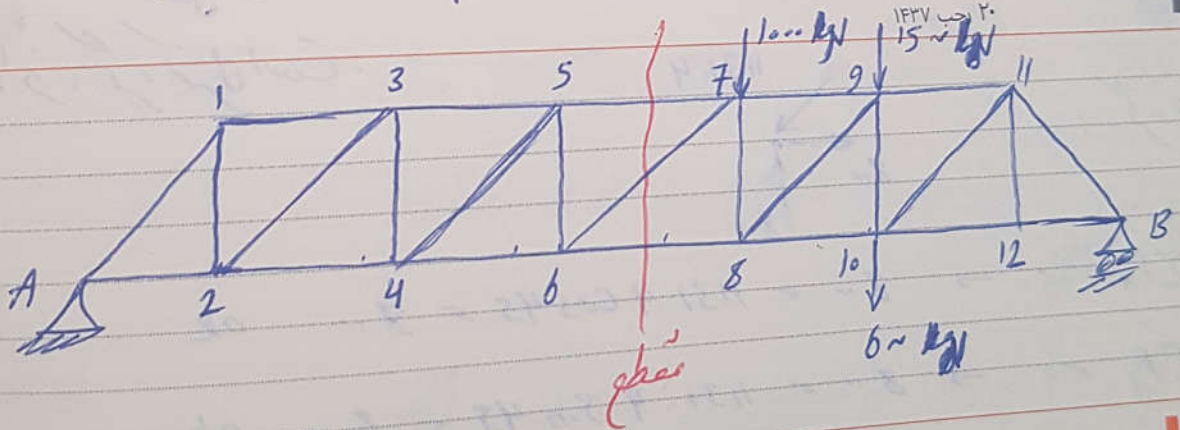 ۲۰ رجب ۱۴۳۷
1000 kg
15~ kg
1 3 5 7 9 11
A 2 4 6 8 10 12 B
6~ kg
مقطع